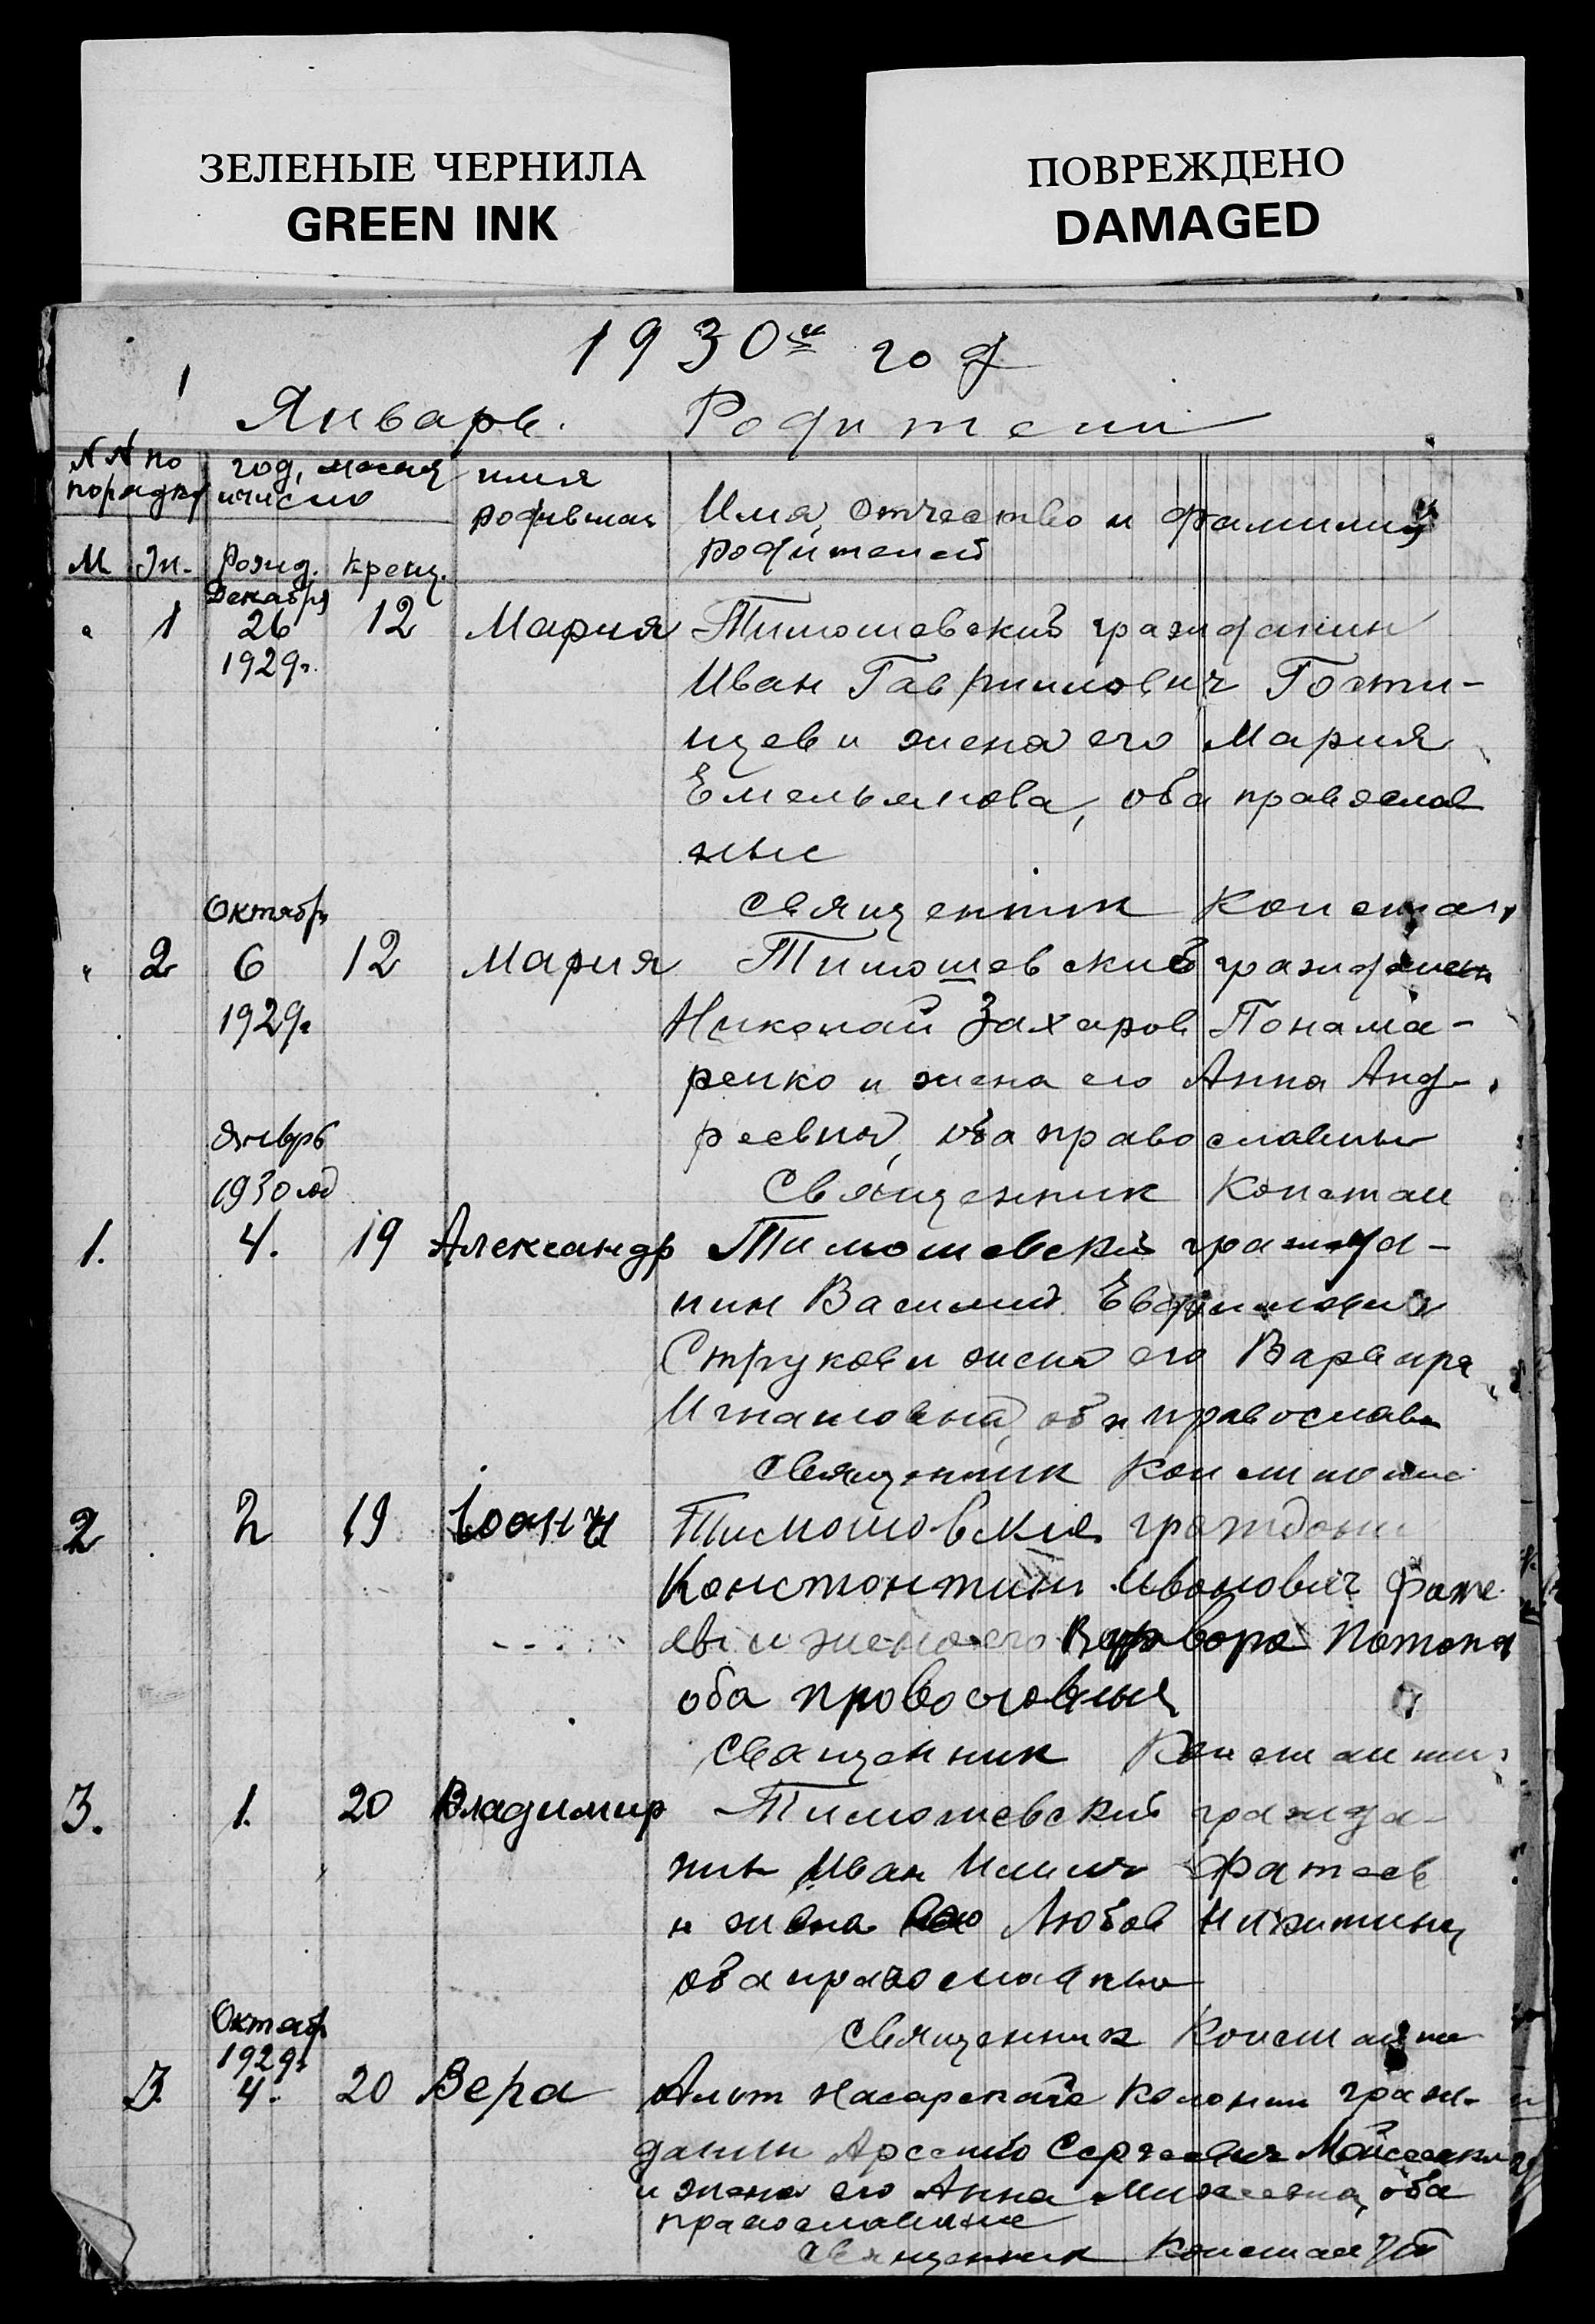 ЗЕЛЕНЫЕ ЧЕРНИЛА
GREEN INK
ПОВРЕЖДЕНО
DAMAGED
1930й год
1
Январь. Родители
№№ по порядку
год, месяц и число
имя родившая
Имя, отчество и фамилия родителей
М Жн. Рожд. Крещ.
Декабря
" 1 26 12 Мария Тимошевский гражданин
1929г.
Иван Гавриилович Гости-
щев и жена его Мария
Емельянова, оба православ
ные
Священник Констан
Октябр
" 2 6 12 Мария Тимошевский гражданин
1929г
Николай Захаров Понама-
ренко и жена его Анна Анд-
реевна, оба православны
Январь
1930 год
Священник Констан
1. 4. 19 Александр Тимошевский гражда-
нин Василий
Струков и жена его Варвара
Игнатовна, оба православн
Священник
2 2 19 Іоанн Тимошовския граждани
Константин Иванович Фате
евъ и жена его Варвара Потапа
оба православныя
Священник Константи
3. 1. 20 Владимир Тимошевский гражда-
нин Иван Ильич Фатеев
и жена его Любов Никитина
оба православны
Священник Константи
Октябр
1929г
3 4. 20 Вера колонии граж-
данин Арсений Сергеевич
и жена его Анна оба
православные
Священник Констан